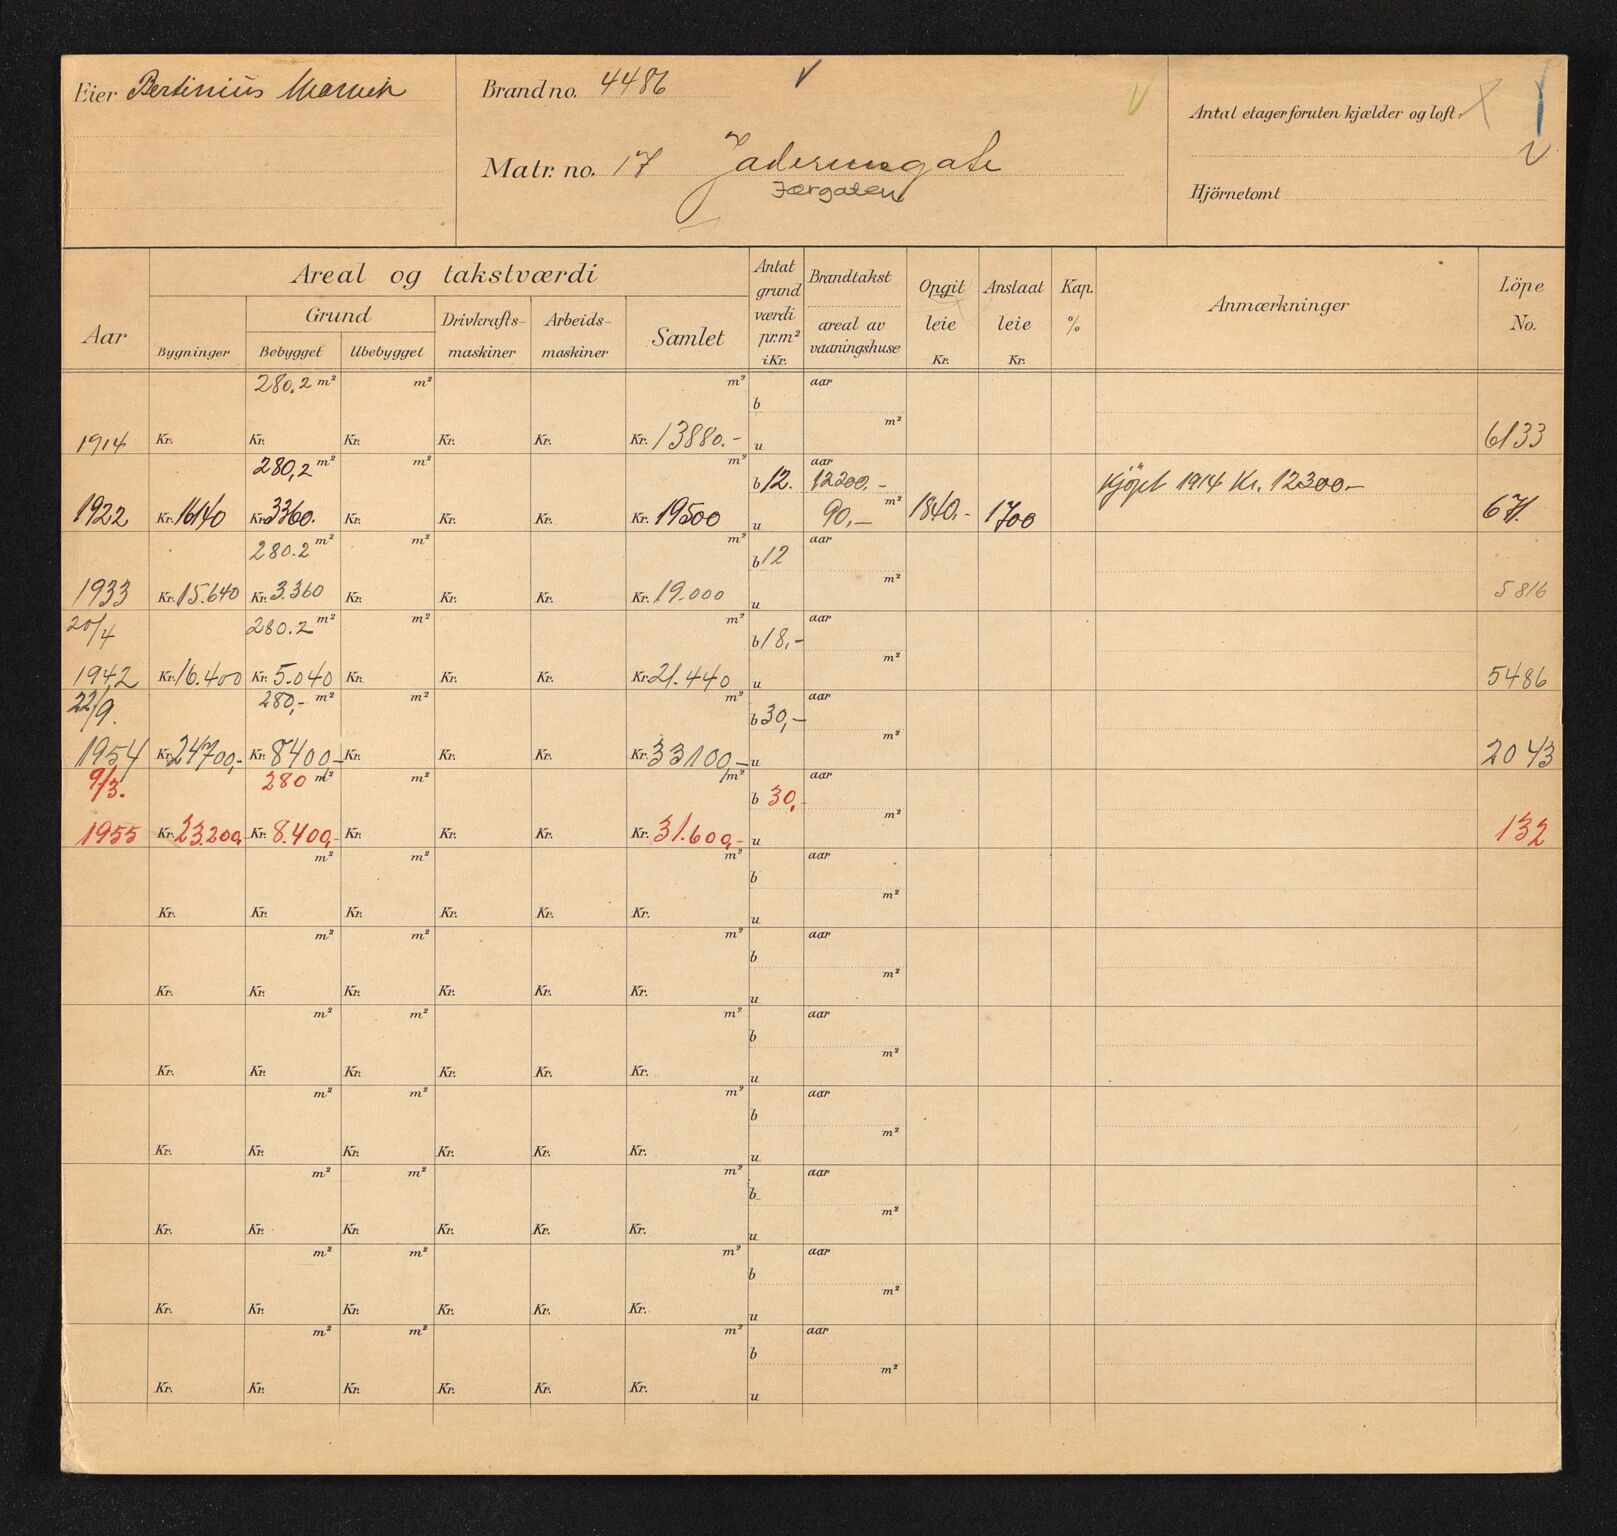 Eier Bertinius
Brand no. 4486
Matr. no. 17 Jaderensgate
Jærgaten
Antal etager foruten kjælder og loft:
Hjörnetomt
Aar
Areal og takstværdi
Grund
Bygninger Bebygget Ubebygget
Drivkrafts-maskiner
Arbeids-maskiner
Samlet
Antat grund værdi pr. m² i Kr.
Brandtakst
areal av vaaningshuse
Opgit leie Kr.
Anslaat leie Kr.
Kap. %
Anmærkninger
Löpe No.
280.2 m² m² m² b aar m²
1914 Kr. Kr. Kr. Kr. Kr. Kr. 13880.- u 6133
280,2 m² m² m² b 12. aar 12200.- Kjöpt 1914 Kr. 12300.-
1922 Kr. 16140 Kr. 3360. Kr. Kr. Kr. Kr. 19500 u 90,- m² 1840.- 1700 671.
280.2 m² m² m² b 12 aar m²
1933 Kr. 15.640 Kr. 3.360 Kr. Kr. Kr. Kr. 19.000 u 5816
20/4 280.2 m² m² m² b 18,- aar m²
1942 Kr. 16.400 Kr. 5.040 Kr. Kr. Kr. Kr. 21.440 u 5486
22/9. 280,- m² m² m² b 30,- aar m²
1954 Kr. 24700,- Kr. 8400- Kr. Kr. Kr. Kr. 33100,- u 2043
9/3. 280 m² m² m² b 30, aar m²
1955 Kr. 23.200,- Kr. 8.400,- Kr. Kr. Kr. Kr. 31.600,- u 132
m² m² m² b aar m²
Kr. Kr. Kr. Kr. Kr. Kr. u
m² m² m² b aar m²
Kr. Kr. Kr. Kr. Kr. Kr. u
m² m² m² b aar m²
Kr. Kr. Kr. Kr. Kr. Kr. u
m² m² m² b aar m²
Kr. Kr. Kr. Kr. Kr. Kr. u
m² m² m² b aar m²
Kr. Kr. Kr. Kr. Kr. Kr. u
m² m² m² b aar m²
Kr. Kr. Kr. Kr. Kr. Kr. u
m² m² m² b aar m²
Kr. Kr. Kr. Kr. Kr. Kr. u